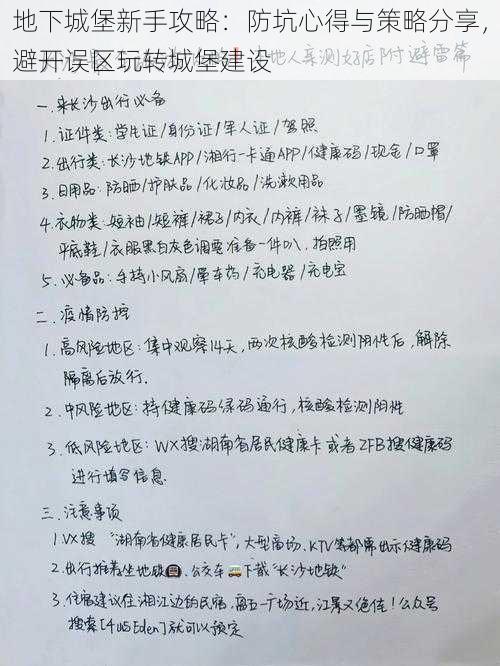 地下城堡新手攻略：防坑心得与策略分享，
避开误区玩转城堡建设
地人亲测好店附避雷篇
一.来长沙出行必备
1.证件类:学生证/身份证/军人证/驾照
2.出行类:长沙地铁APP/湘行一卡通APP/健康码/现金/口罩
3.日用品:防晒/护肤品/化妆品/洗漱用品
4.衣物类:短袖/短裤/裙子/内衣/内裤/袜子/墨镜/防晒帽/
平底鞋/衣服黑白灰色调要准备一件叭,拍照用
5.必备品:手持小风扇/晕车药/充电器/充电宝
二.疫情防控
1.高风险地区:集中观察14天,两次核酸检测阴性后,解除
隔离后放行.
2.中风险地区:持健康码绿码通行,核酸检测阴性
3.低风险地区:WX搜湖南省居民健康卡或者ZFB搜健康码
进行填写信息.
三.注意事项
1.VX搜 "湖南省健康居民卡",大型商场、KTV等都需出示健康码
2.出行推荐坐地铁🚇、公交车🚌下载"长沙地铁"
3.住宿建议住湘江边的民宿,离五一广场近,江景又绝佳!公众号
搜索[4u5Eden]就可以预定